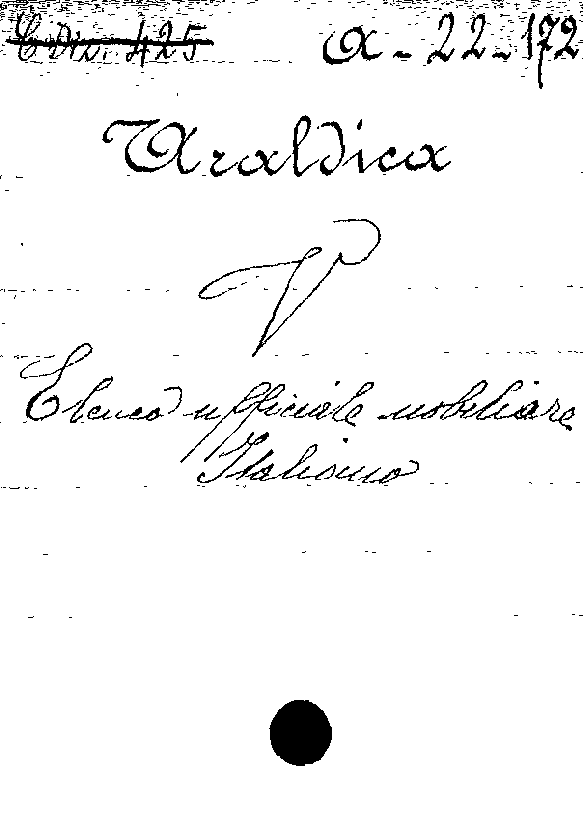 C Diz. 425 A-22-172
Araldica
V
Elenco ufficiale nobiliare
Italiano